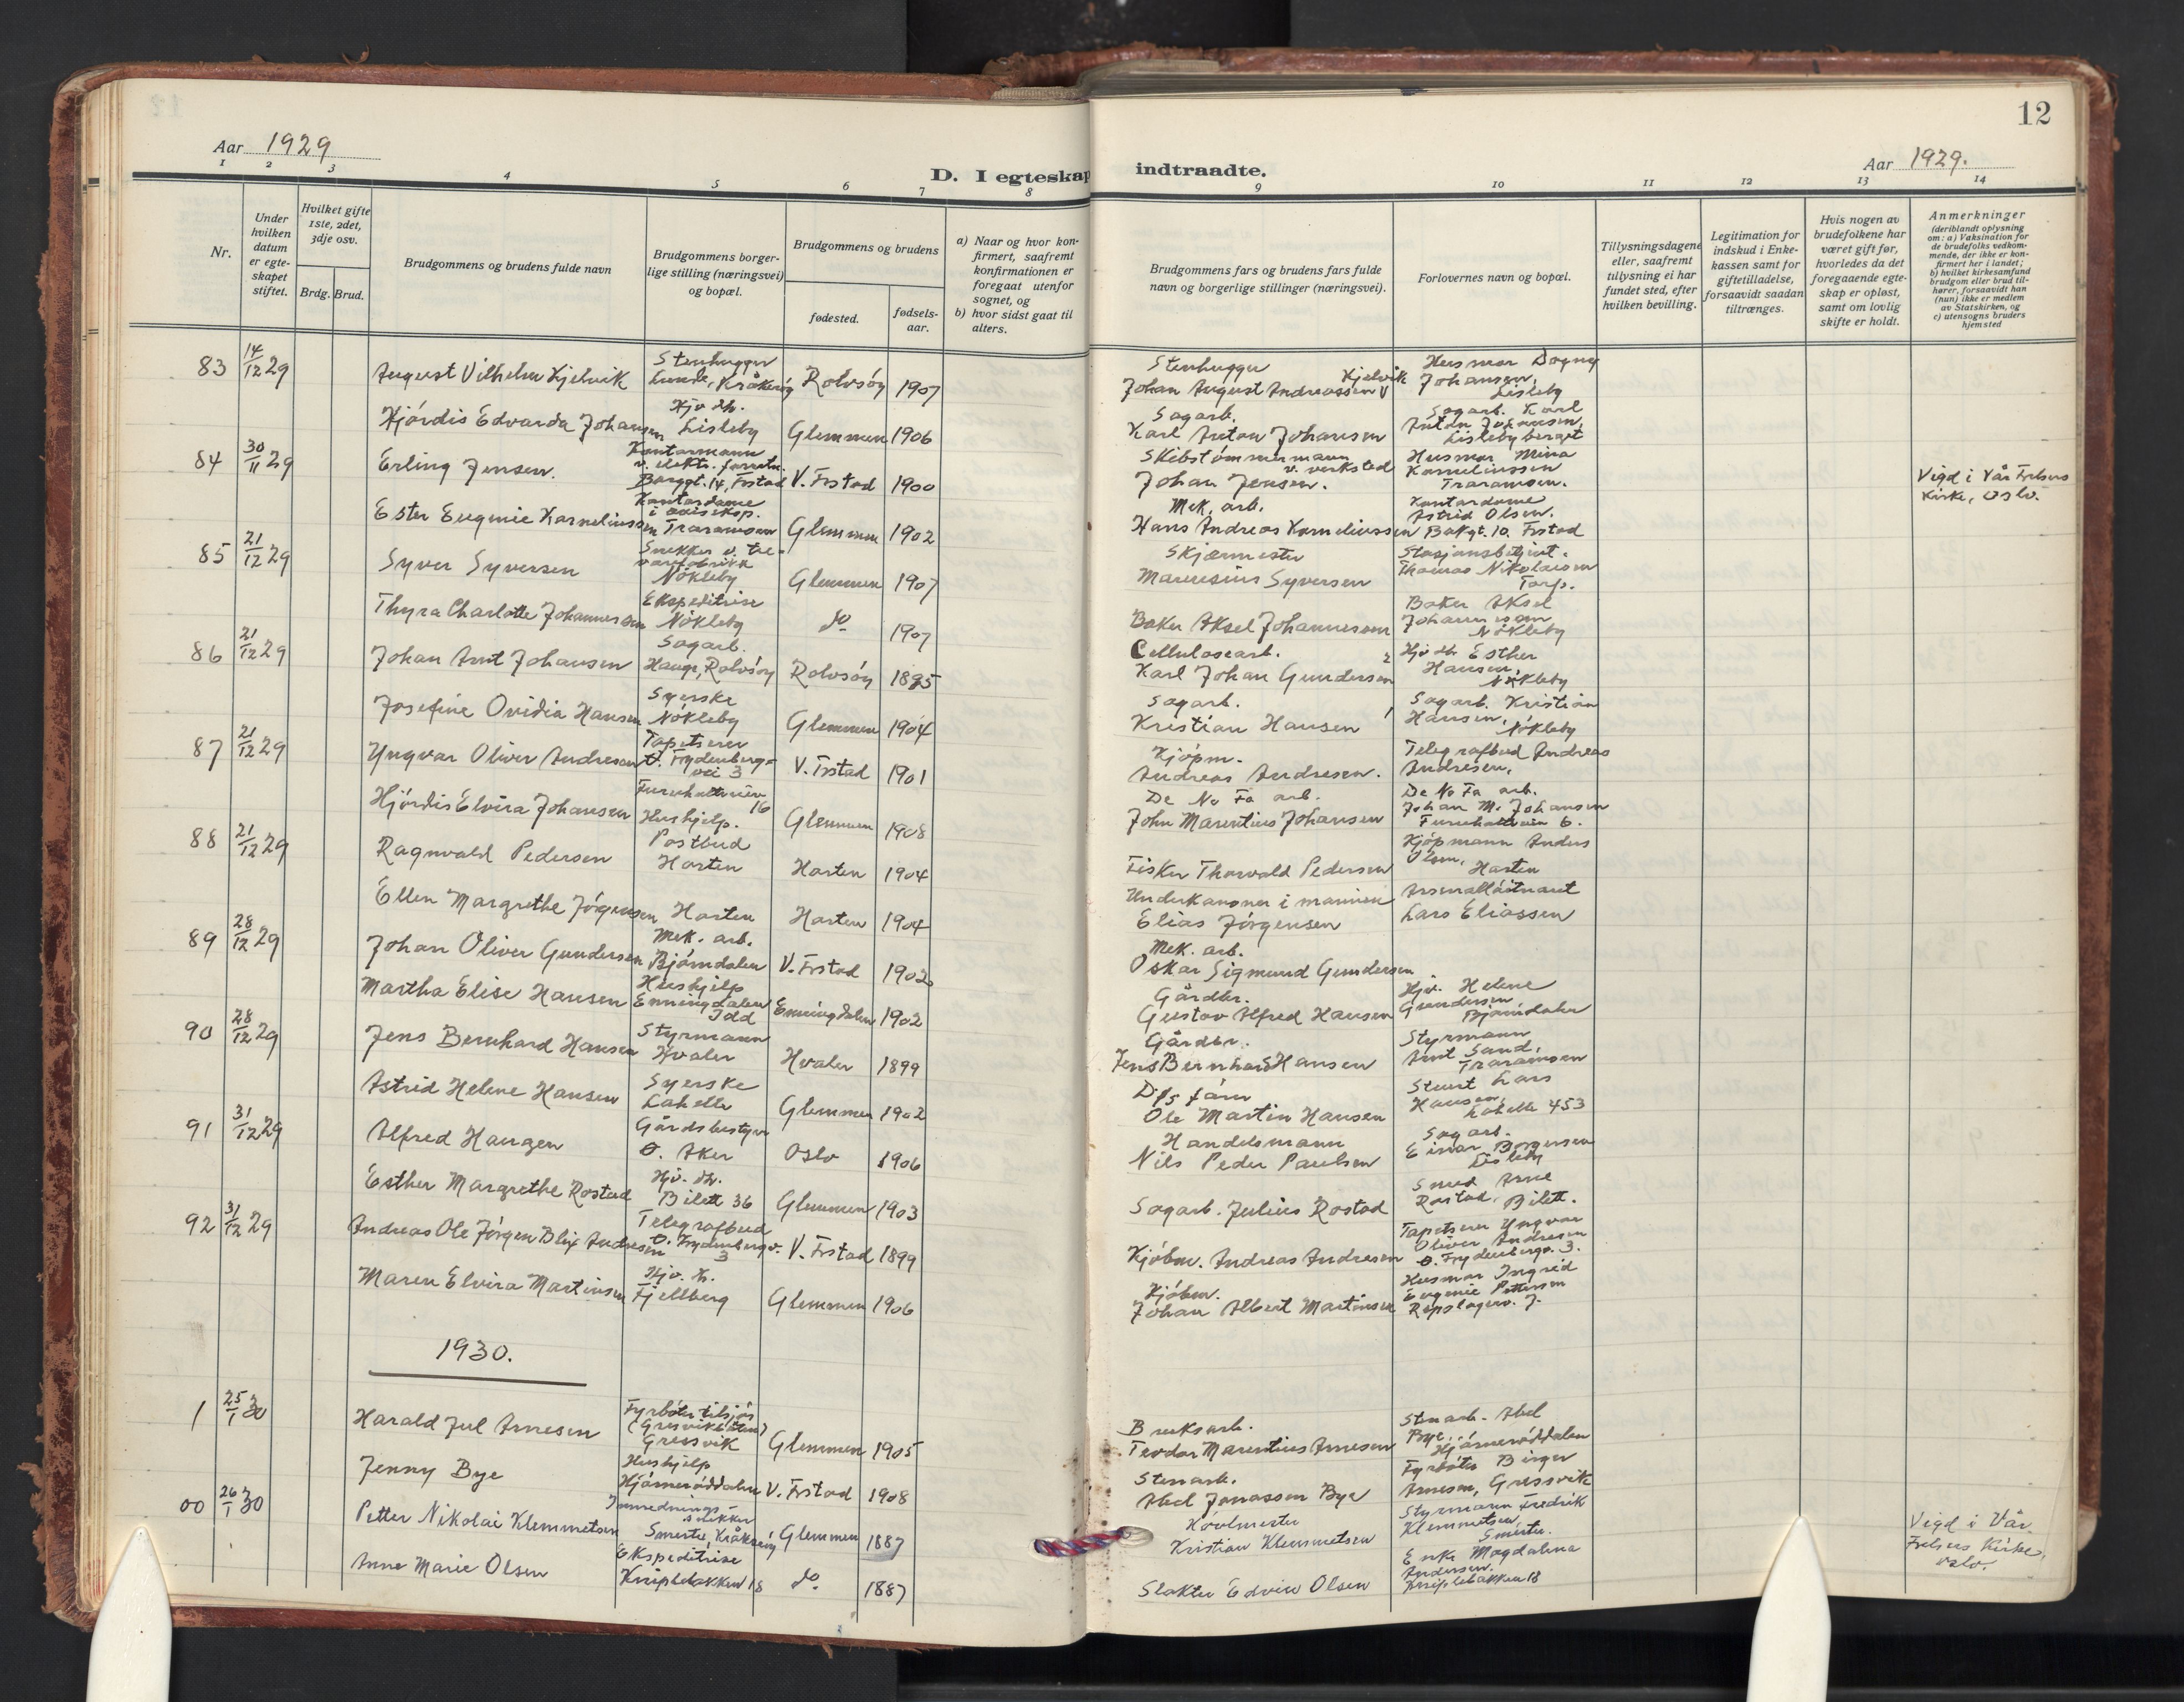 12
Aar 1929
D. I egteskap indtraadte.
Aar 1929.
1 2 3 4 5 6 7 8 9 10 11 12 13 14
Nr.
Under hvilken datum er egteskapet stiftet.
Hvilket gifte 1ste, 2det, 3dje osv.
Brdg. Brud.
Brudgommens og brudens fulde navn
Brudgommens borgerlige stilling (næringsvei) og bopæl.
Brudgommens og brudens
fødested.
fødselsaar.
a) Naar og hvor konfirmert, saafremt konfirmationen er foregaat utenfor sognet, og
b) hvor sidst gaat til alters.
Brudgommens fars og brudens fars fulde navn og borgerlige stillinger (næringsvei).
Forlovernes navn og bopæl.
Tillysningsdagene eller, saafremt tillysning ei har fundet sted, efter hvilken bevilling.
Legitimation for indskud i Enkekassen samt for giftetilladelse, forsaavidt saadan tiltrænges.
Hvis nogen av brudefolkene har været gift før, hvorledes da det foregaaende egteskap er opløst, samt om lovlig skifte er holdt.
Anmerkninger (deriblandt oplysning om: a) Vaksination for de brudefolks vedkommende, der ikke er konfirmert her i landet; b) hvilket kirkesamfund brudgom eller brud tilhører, forsaavidt han (hun) ikke er medlem av Statskirken, og c) utensogns bruders hjemsted
83 14/12 29 August Vilhelm Kjelvik Stenhugger Lunde, Kråkerøy Rolvsøy 1907 Stenhugger Johan August Andreassen Kjelvik Husmor Dagny Johansen, Lisleby
Hjördis Edvarda Johansen Hjv. dtr. Lisleby Glemmen 1906 Sagarb. Karl Anton Johansen Sagarb. Karl Anton Johansen, Lisleby berget
84 30/11 29 Erling Jensen. Kontormann v. elektr. forretn. Borggt. 14, Frstad V. Frstad 1900 Skibstömmermann v. verksted Johan Jensen. Husmor Mina Korneliussen Traraveien. Vigd i Vår Frelsers Kirke, Oslo.
Ester Eugenie Korneliussen Kontordame i aviseksp. Glemmen 1902 Mek. arb. Hans Andreas Korneliussen Kontordame Astrid Olsen. Bakgt. 10. Frstad
85 21/12 29 Syver Syversen Snekker v. trevarefabrikk Nökleby Glemmen 1907 Skjærmester Maurisius Syversen Stasjonsbetjent. Thomas Nikolaisen Torp.
Thyra Charlotte Johannessen Ekspeditrise Nökleby do 1907 Baker Aksel Johannessen Baker Aksel Johannessen Nökleby
86 21/12 29 Johan Arnt Johansen Sagarb. Hauge, Rolvsöy Rolvsöy 1895 Cellulosearb. Karl Johan Gundersen 2 Hjv dtr Esther Hansen, Nökleby
Josefine Ovidia Hansen Syerske Nökleby Glemmen 1904 Sagarb. Kristian Hansen 1 Sagarb. Kristian Hansen, Nökleby
87 21/12 29 Yngvar Oliver Andresen Tapetserer O. Frydenbergvei 3 V. Frstad 1901 Kjöpm. Andreas Andresen. Telegrafbud Andreas Andresen,
Hjördis Elvira Johansen 16 Hushjelp. Glemmen 1908 De No Fa arb. John Marentius Johansen De No Fa arb. Johan M. Johansen 6.
88 21/12 29 Ragnvald Pedersen Postbud Horten Horten 1904 Fisker Thorvald Pedersen Kjöpmann Anders Olsen, Horten
Ellen Margrethe Jörgensen Horten Horten 1904 Underkanoner i marinen Elias Jörgensen Lars Eliassen
89 28/12 29 Johan Oliver Gundersen Mek. arb. Björndalen V. Frstad 1902 Mek. arb. Oskar Sigmund Gundersen
Martha Elise Hansen Hushjelp Enningdalen Idd Enningdalen 1902 Gårdbr. Gustav Alfred Hansen Hjv. Helene Gundersen Björndalen
90 28/12 29 Jens Bernhard Hansen Styrmann Hvaler Hvaler 1899 Gårdbr. Jens Bernhard Hansen Styrmann Arnt Sand, Traraveien
Astrid Helene Hansen Syerske Lahelle Glemmen 1902 Ole Martin Hansen Stuert Lars Hansen, Lahelle 453
91 31/12 29 Alfred Haugen Gårdsbestyrer O. Aker Oslo 1906 Handelsmann Nils Peder Paulsen Sagarb. Einar Borgersen Lisleby
Esther Margrethe Rostad Hjv. dtr. Bilett 36 Glemmen 1903 Sagarb. Julius Rostad Smed Arne Rostad, Bilett.
92 31/12 29 Andreas Ole Jörgen Blix Andresen Telegrafbud O. Frydenbergv. 3 V. Frstad 1899 Kjöbm. Andreas Andresen Tapetserer Yngvar Oliver Andresen O. Frydenbergv. 3.
Maren Elvira Martinsen Hjv. h. Fjellberg Glemmen 1906 Kjöbm. Johan Albert Martinsen Husmor Ingrid Eugenie Pettersen Repslagerv. 7.
1930.
1 25/1 30 Harald Jul Arnesen Fyrböter tilsjös Gressvik Glemmen 1905 Bruksarb. Teodor Marentius Arnesen Stenarb. Abel Bye, Hjörneröddalen
Jenny Bye Hushjelp Hjörneröddalen V. Frstad 1908 Stenarb. Abel Jonassen Bye Fyrböter Birger Arnesen, Gressvik
00 26/1 30 Petter Nikolai Klemmetsen Innredningssnikker Smertu, Kråkeröy Glemmen 1887 Hövlmester Kristian Klemmetsen Styrmann Fredrik Klemmetsen Smertu. Vigd i Vår Frelsers Kirke, Oslo.
Anne Marie Olsen Ekspeditrise Kniplebakken 18 do. 1887 Slakter Edvin Olsen Enke Magdalena Andersen. Kniplebakken 18